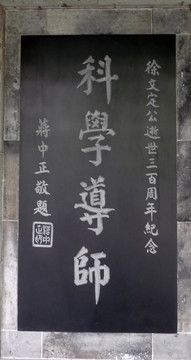 徐文定公逝世三百周年紀念
科學導師
蔣中正敬題